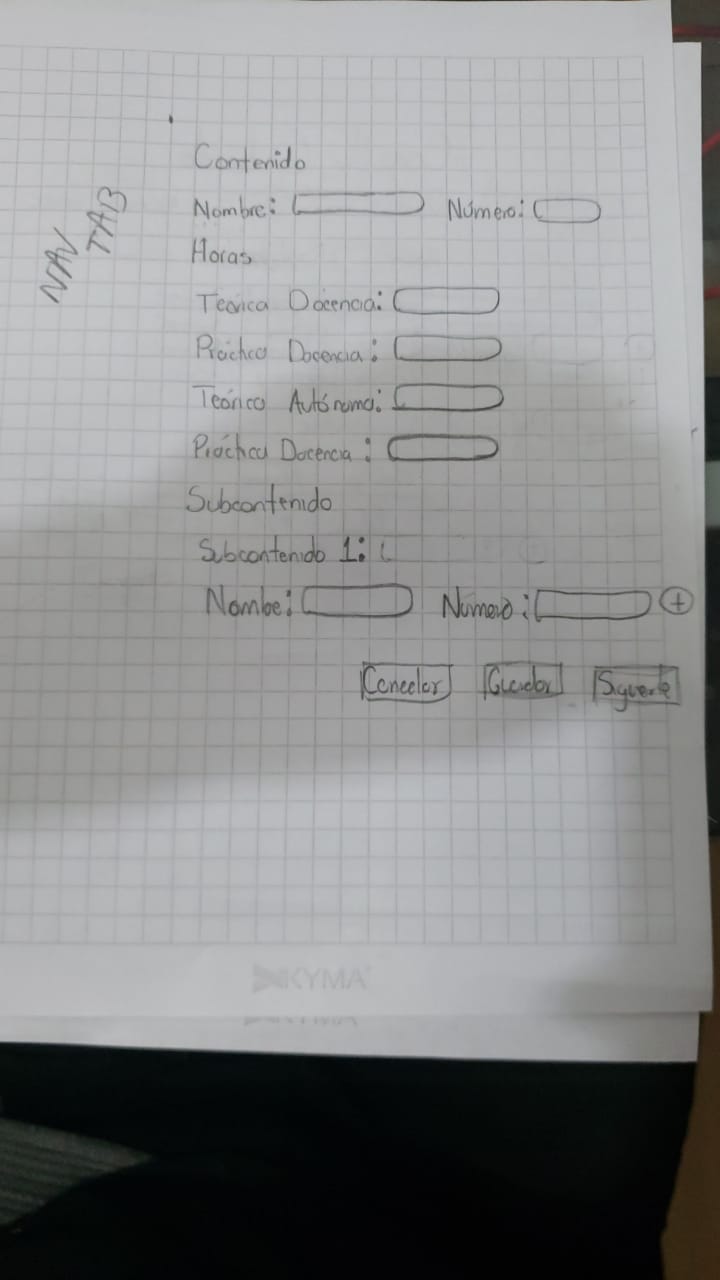 NAV
TAB
Contenido
Nombre: Número:
Horas
Teórica Docencia:
Práctica Docencia:
Teórica Autónoma:
Práctica Docencia:
Subcontenido
Subcontenido 1:
Nombe: Número: +
Cancelar Guardar Siguente
KYMA